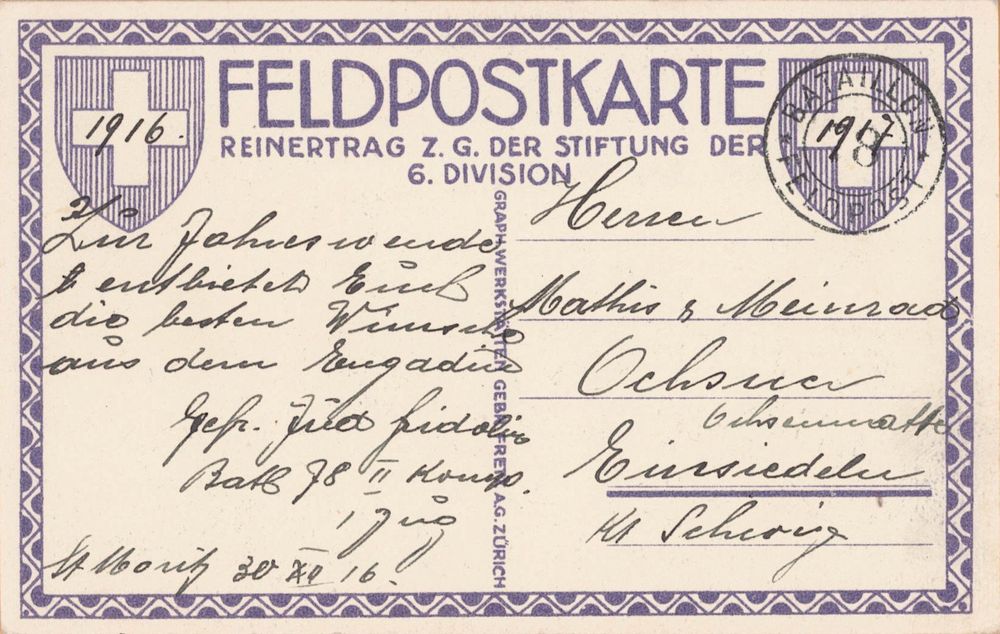 FELDPOSTKARTE
REINERTRAG Z. G. DER STIFTUNG DER
6. DIVISION
1916.
1917
BATAILLON
78
FELDPOST
Zur Jahreswende
entbietet Euch
die besten Wünsche
aus dem Engadin
Gefr. Füd Fridolin
Batl 78 II Komp.
I Zug
St Moritz 30 XII 16.
GRAPH. WERKSTÄTTEN GEBR. FRETZ A.G. ZÜRICH
Herren
Mathis & Meinrad
Ochsner
Ochsenmatte
Einsiedeln
Kt Schwiz